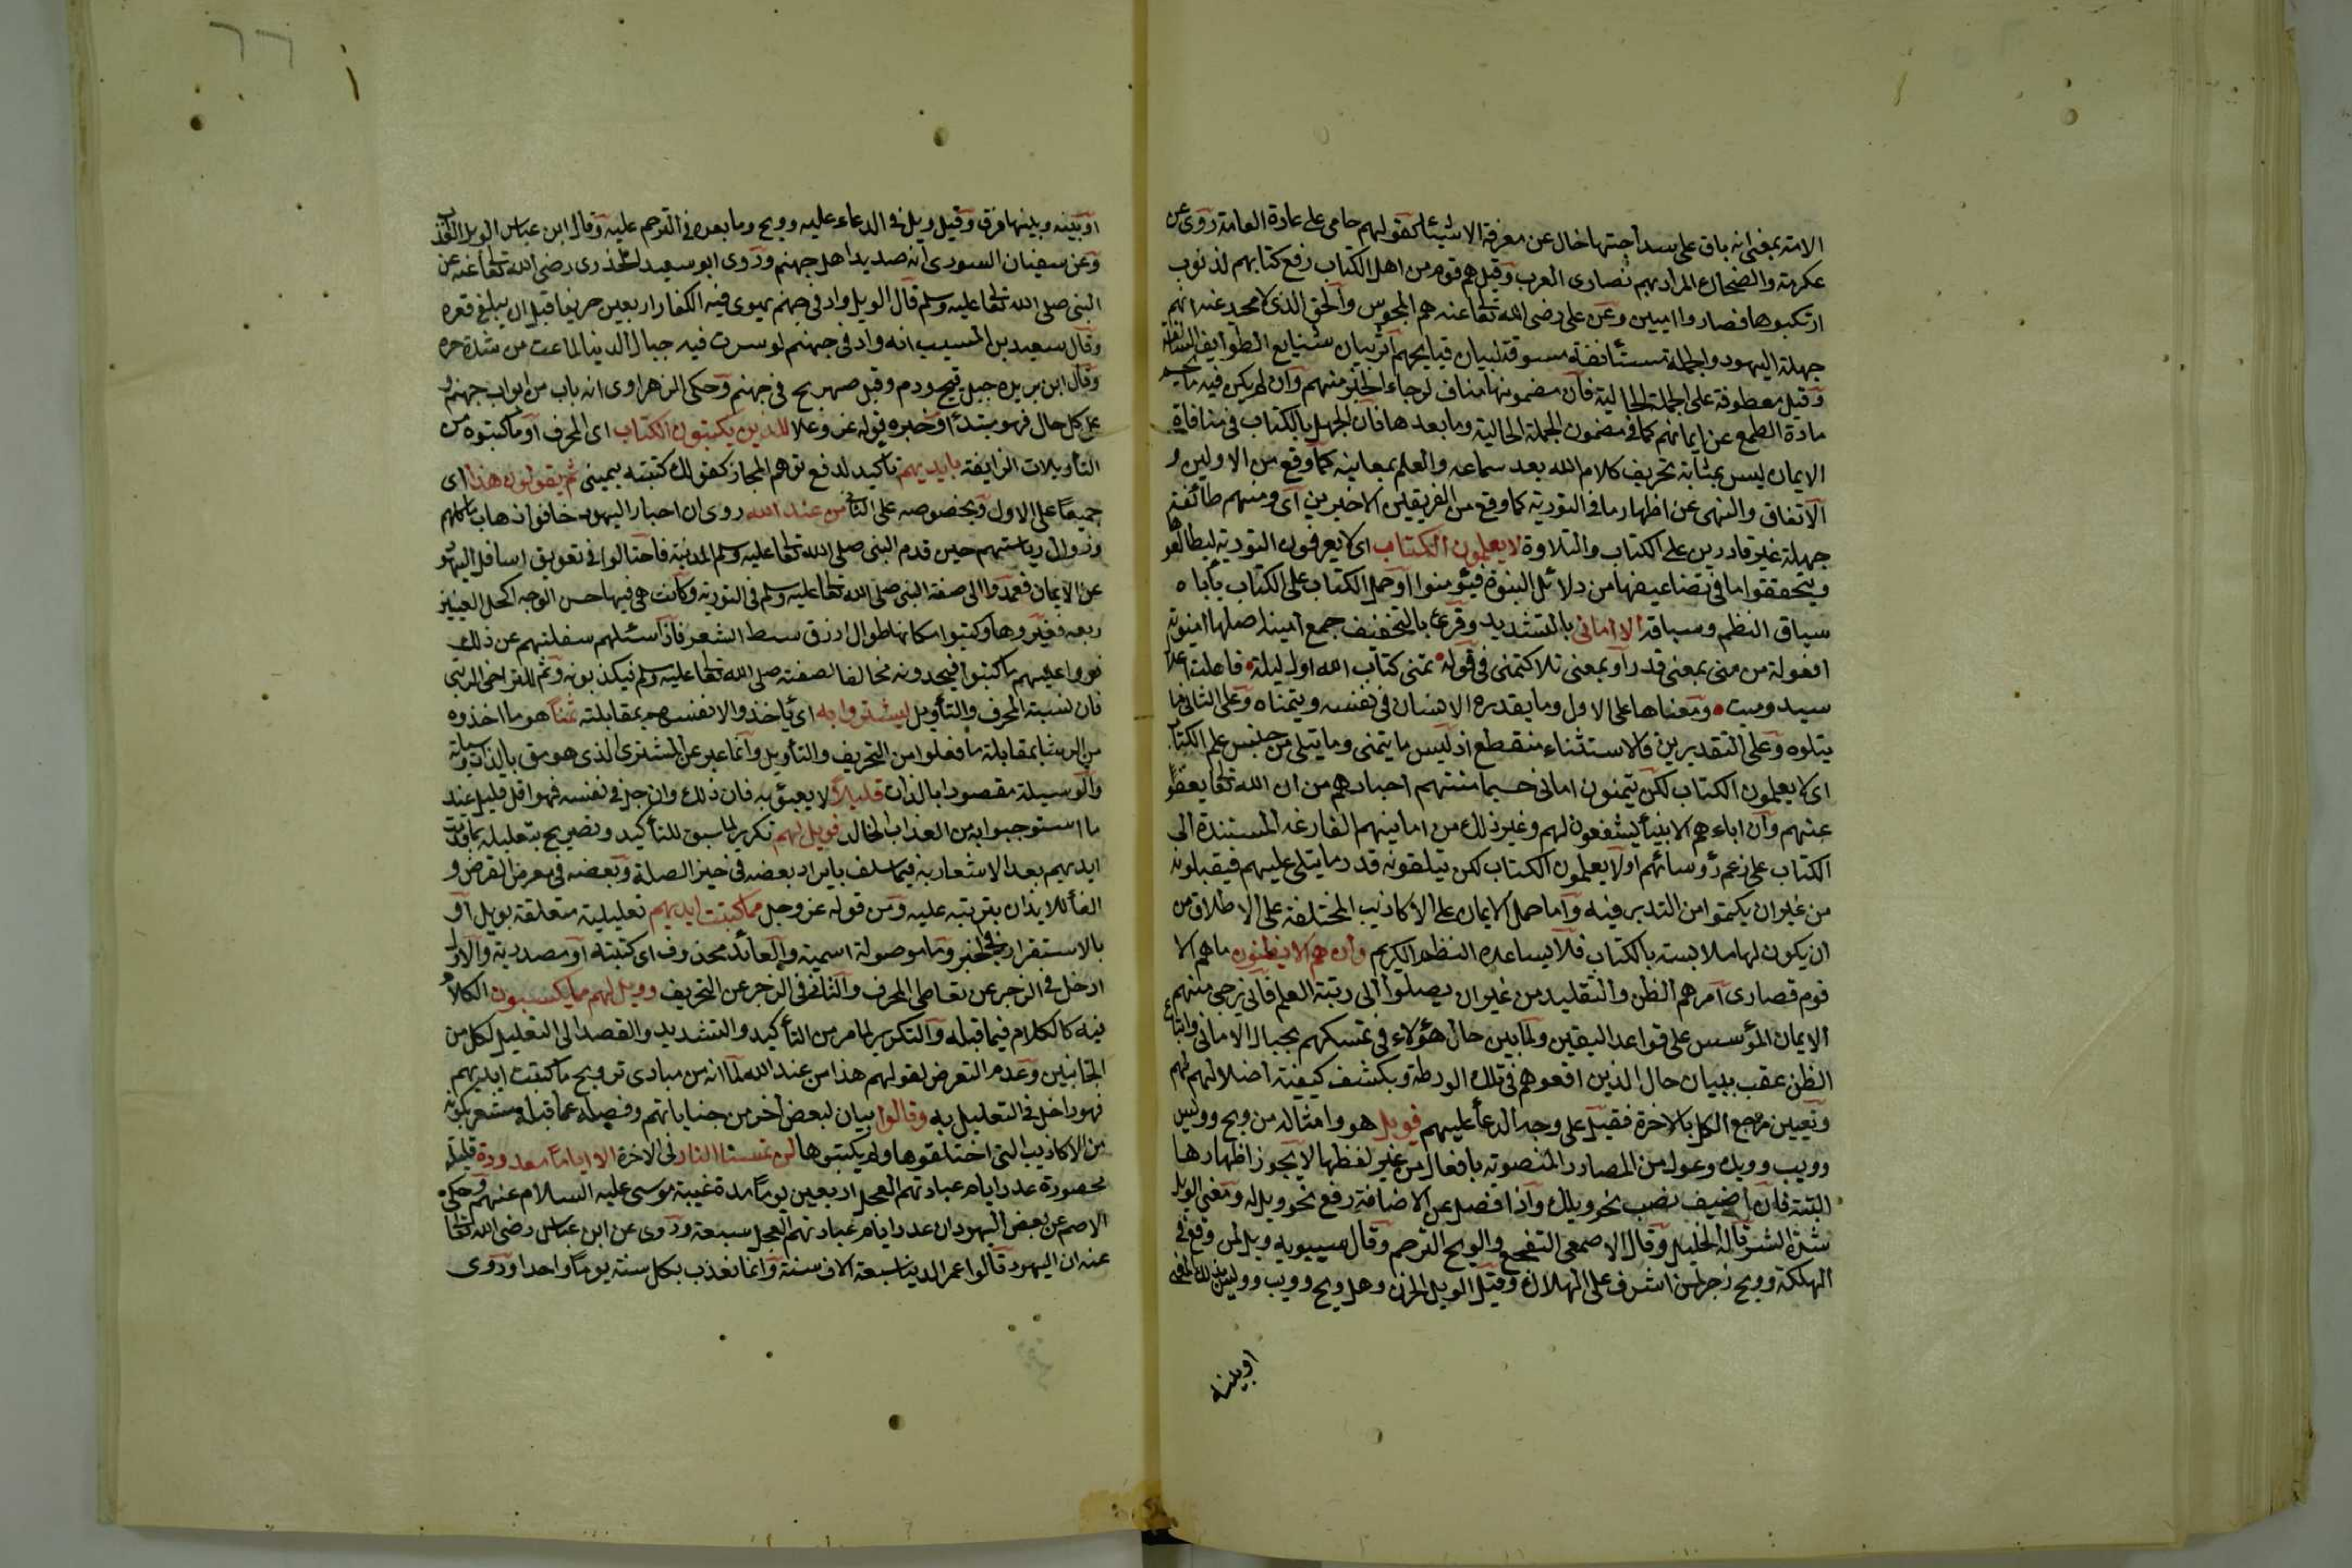 الامة بمعنى انه باق على سذاجتها خال عن معرفة الاشياء كقولهم عامى على عادة العامة روى عن
عكرمة والضحاك المراد بهم نصارى العرب وقيل هم قوم من اهل الكتاب رفع كتابهم لذنوب
ارتكبوها فصاروا اميين وعن على رضى الله تعالى عنه هم المجوس والحق الذى لا محيد عنه انهم
جهلة اليهود والجملة مستأنفة مسوقة لبيان قبايحهم اثر بيان شنايع الطوايف السالفة
وقيل معطوفة على الجملة الحالية فان مضمونها مناف لرجاء الخير منهم وان لم يكن فيه ما يحسم
مادة الطمع عن ايمانهم كما فى مضمون الجملة الحالية وما بعدها فان الجهل بالكتاب فى منافاة
الايمان ليس بمثابة تحريف كلام الله بعد سماعه والعلم بمعانيه كما وقع من الاولين و
الاتفاق والنهى عن اظهار ما فى التورية كما وقع من الفريقين الاخيرين اى ومنهم طائفة
جهلة غير قادرين على الكتاب والتلاوة لا يعلمون الكتاب اى لا يعرفون التورية ليطالعوها
ويتحققوا ما فى تضاعيفها من دلائل النبوة فيؤمنوا او حمل الكتاب على الكتاب يأباه
سياق النظم وسباقه الا امانى بالتشديد وقرئ بالتخفيف جمع امنية اصلها امنوية
افعولة من منى بمعنى قدر او بمعنى تلا كتمنى فى قوله تمنى كتاب الله اول ليلة فاعلت اعلال
سيد وميت ومعناها على الاول وما يقدره الانسان فى نفسه ويتمناه وعلى الثانى ما
يتلوه وعلى التقديرين فالاستثناء منقطع اذ ليس ما يتمنى وما يتلى من جنس علم الكتاب
اى لا يعلمون الكتاب لكن يتمنون امانى حسبما منتهم احبارهم من ان الله تعالى يعفو
عنهم وان اباءهم الانبياء يشفعون لهم وغير ذلك من امانيهم الفارغة المستندة الى
الكتاب على زعم رؤسائهم او لا يعلمون الكتاب لكن يتلقونه قدر ما يتلى عليهم فيقبلونه
من غير ان يتمكنوا من التدبر فيه واما حمل الامانى على الاكاذيب المختلفة على الاطلاق من
ان يكون لها ملابسة بالكتاب فلا يساعده النظم الكريم وان هم الا يظنون ما هم الا
قوم قصارى امرهم الظن والتقليد من غير ان يصلوا الى رتبة العلم فانى يرجى منهم
الايمان المؤسس على قواعد اليقين ولما بين حال هؤلاء فى تمسكهم بحبال الامانى واتباع
الظن عقب ببيان حال الذين اوقعوهم فى تلك الورطة وبكشف كيفية اضلالهم لهم
وتعيين مرجع الكل بالاخرة فقيل على وجه الدعاء عليهم فويل هو وامثاله من ويح وويس
وويب وويه وويك وعول من المصادر المنصوبة بافعال من غير لفظها لا يجوز اظهارها
البتة فان اضيف نصب نحو ويلك واذا فصل عن الاضافة رفع نحو ويل له ومعنى الويل
شدة الشر قاله الخليل وقال الاصمعى التفجع والويح الترحم وقال سيبويه ويل لمن وقع فى
الهلكة وويح زجر لمن اشرف على الهلاك وقيل الويل الحزن وهل ويح وويب وويس بذلك المعنى
اوبينه
٦٦
اوبينه وبينها فرق وقيل ويل فى الدعاء عليه وويح وما بعده فى الترحم عليه وقال ابن عباس الويل العذاب
وعن سفيان الثورى انه صديد اهل جهنم وروى ابو سعيد الخدرى رضى الله تعالى عنه عن
النبى صلى الله تعالى عليه وسلم قال الويل واد فى جهنم يهوى فيه الكفار اربعين خريفا قبل ان يبلغ قعره
وقال سعيد بن المسيب انه واد فى جهنم لو سيرت فيه جبال الدنيا لماعت من شدة حره
وقال ابن بريده جبل قيح ودم وقيل صهريج فى جهنم وحكى الزهراوى انه باب من ابواب جهنم و
على كل حال فهو مبتدأ وخبره قوله عز وعلا للذين يكتبون الكتاب اى المحرف او ما كتبوه من
التأويلات الزايغة بايديهم تأكيد لدفع توهم المجاز كقولك كتبته بيمينى ثم يقولون هذا اى
جميعا على الاول وبخصوصه على الثانى من عند الله روى ان احبار اليهود خافوا ذهاب ماكلهم
وزوال رياستهم حين قدم النبى صلى الله تعالى عليه وسلم المدينة فاحتالوا فى تعويق اسافل اليهود
عن الايمان فعمدوا الى صفة النبى صلى الله تعالى عليه وسلم فى التورية وكانت هى فيها حسن الوجه اكحل العينين
ربعة فغيروها وكتبوا مكانها طوال ازرق سبط الشعر فاذا سئلهم سفلتهم عن ذلك
قرؤا عليهم ما كتبوا فيجدونه مخالفا لصفته صلى الله تعالى عليه وسلم فيكذبونه وثم للتراخى الرتبى
فان نسبة المحرف والتأويل ليشتروا به اى يأخذوا لانفسهم بمقابلته ثمنا هو ما اخذوه
من الرشا بمقابلة ما فعلوا من التحريف والتأويل وانما عبر عن المشترى الذى هو مق بالذات وسيلة
والوسيلة مقصودا بالذات قليلا لا يعبؤ به فان ذلك وان جل فى نفسه فهو اقل قليل عند
ما استوجبوا به من العذاب الخالد فويل لهم تكرير لما سبق للتأكيد وتصريح بتعليله بما قدمت
ايديهم بعد الاشعار به فيما سلف بايراد بعضه فى حيز الصلة وبعضه فى معرض الغرض و
الفاء للايذان بترتبه عليه ومن قوله عز وجل مما كتبت ايديهم تعليلية متعلقة بويل او
بالاستقرار فى الخبر وما موصولة اسمية والعائد محذوف اى كتبته او مصدرية والاول
ادخل فى الزجر عن تعاطى المحرف والثانى فى الزجر عن التحريف وويل لهم مما يكسبون الكلام
فيه كالكلام فيما قبله والتكرير لما مر من التأكيد والتشديد والقصد الى التعليل لكل من
الجانبين وعدم التعرض لقولهم هذا من عند الله لما انه من مبادى ترويج ما كتبت ايديهم
فهو داخل فى التعليل به وقالوا بيان لبعض اخر من جناياتهم وفصله عما قبله مشعر بكونه
من الاكاذيب التى اختلقوها ولم يكتبوها لن تمسنا النار فى الاخرة الا اياما معدودة قليلة
محصورة عدد ايام عبادتهم العجل اربعين يوما مدة غيبة موسى عليه السلام عنهم وحكى
الاصم عن بعض اليهود ان عدد ايام عبادتهم العجل سبعة وروى عن ابن عباس رضى الله تعالى
عنه ان اليهود قالوا عمر الدنيا سبعة الاف سنة وانما نعذب بكل سنة يوما واحدا وروى